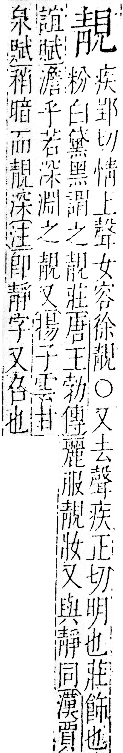 靚疾郢切情上聲女容徐靚○又去聲疾正切明也莊飾也
粉白黛黑謂之靚莊唐王勃傳麗服靚妝又與靜同漢賈
誼賦澹乎若深淵之靚又揚子雲甘
泉賦稍暗而靚深注卽靜字又召也